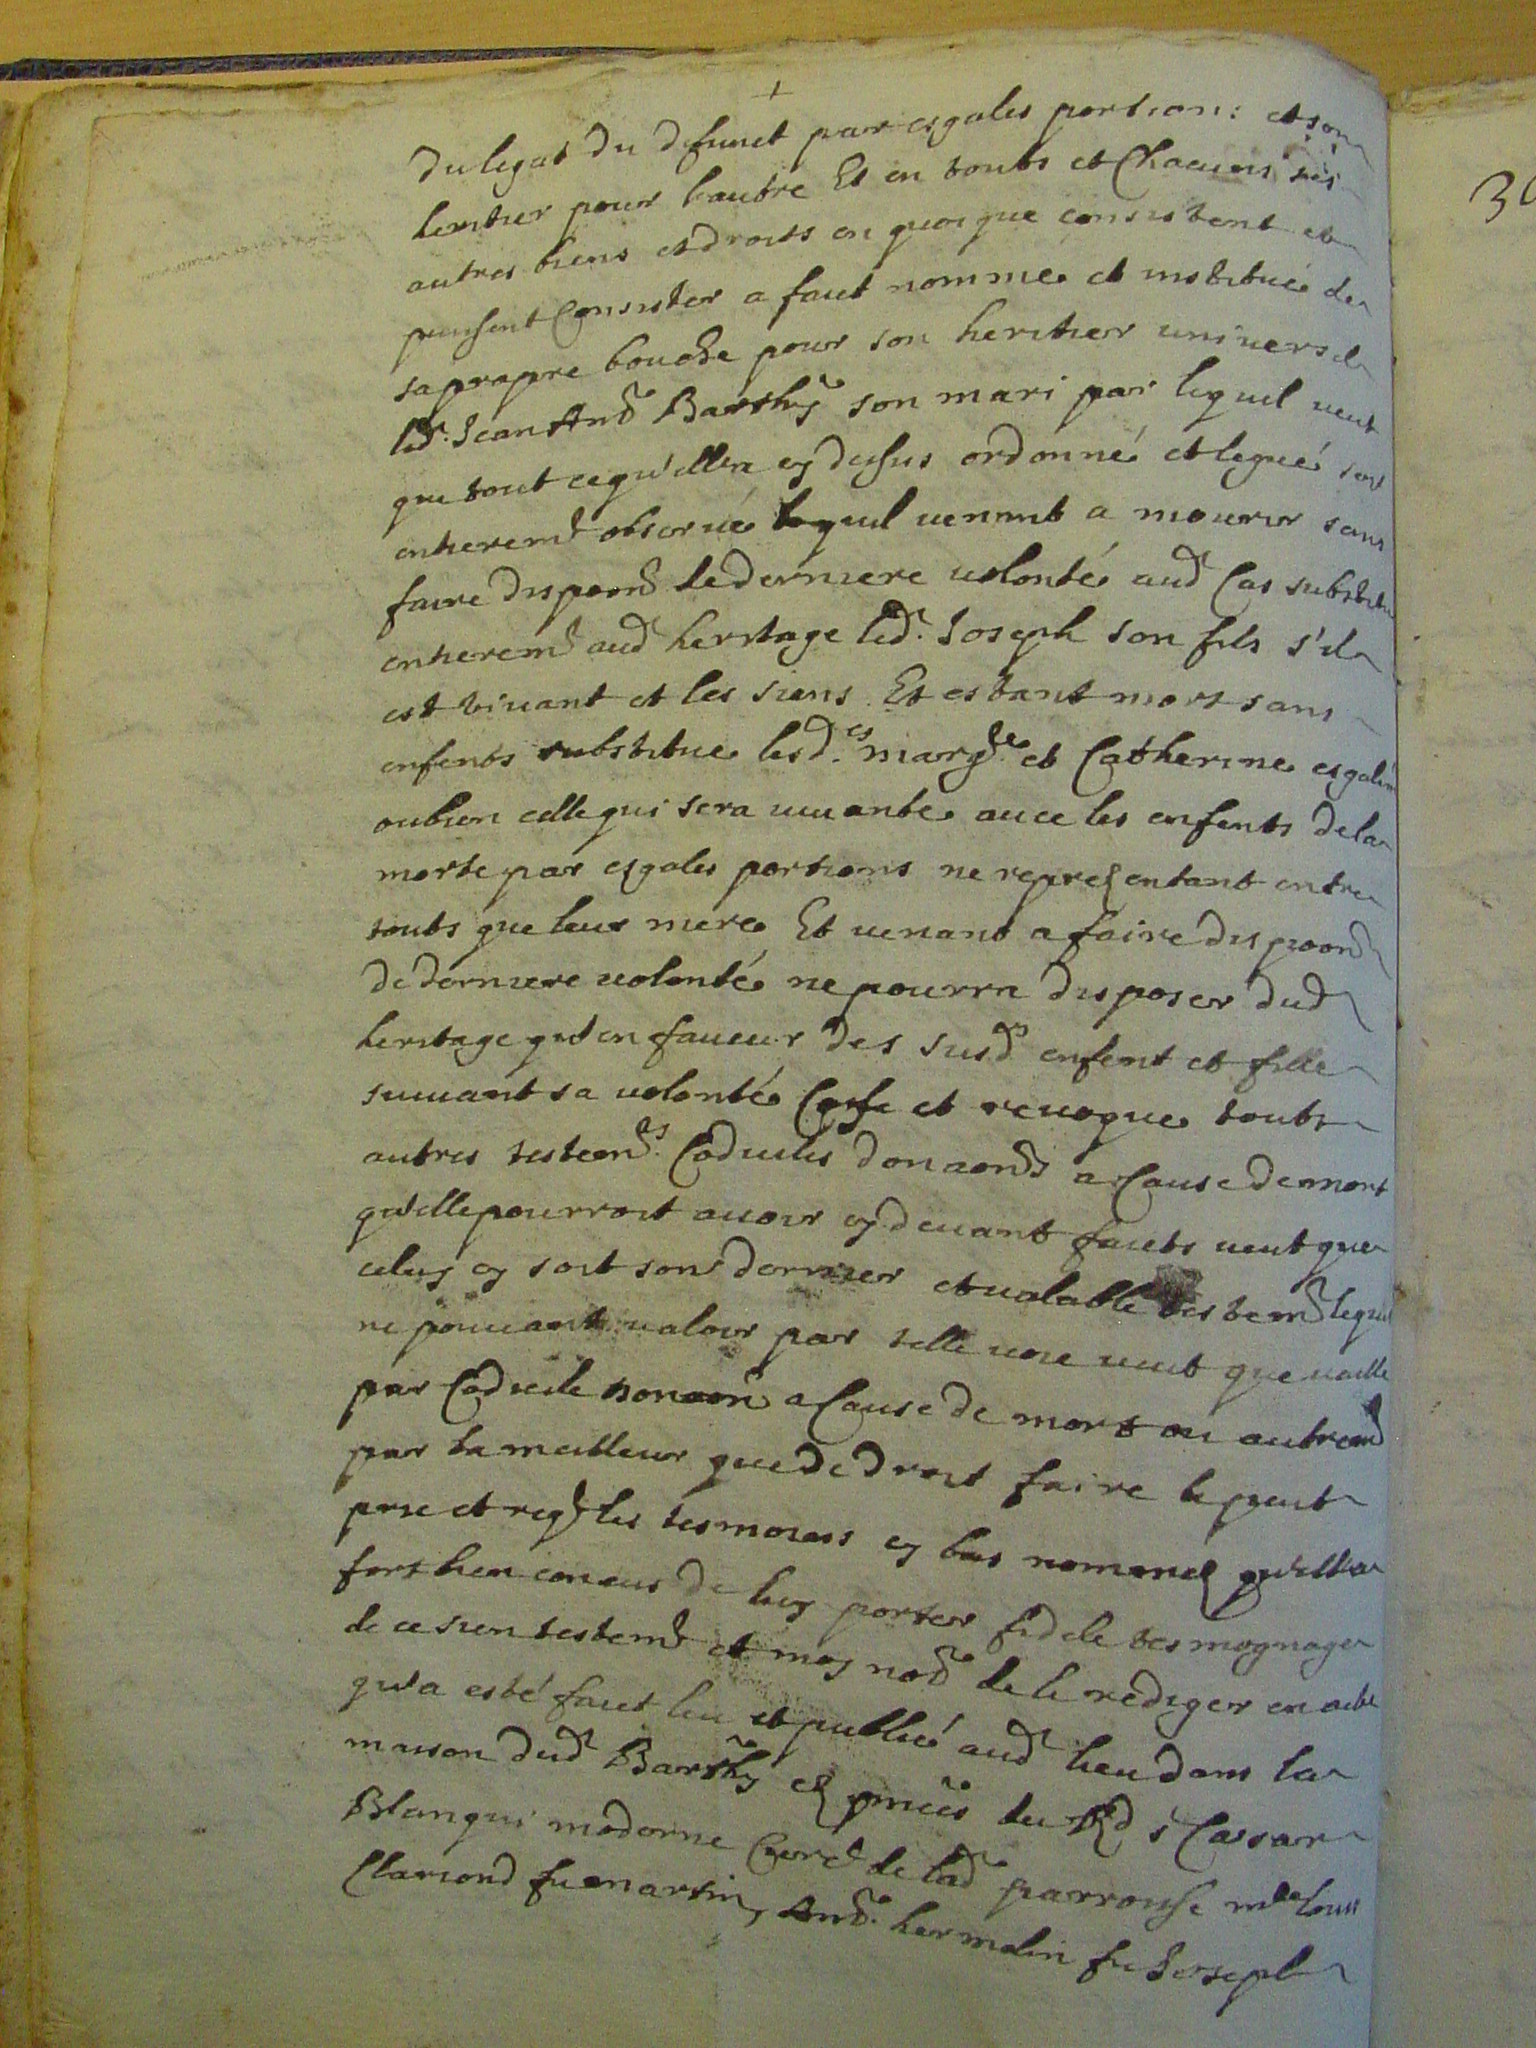 +
du legat du defunct par esgales portions et son
heritier pour l'autre Et en touts et Chacuns ses
autres biens et droits en quoi que consistent et
puissent Consister a faict nommé et institué de
sa propre bouche pour son heritier universel
led.r Jean And.é Barthy son mari par lequel veut
que tout ce qu'elle a cy dessus ordonné et legué soit
entierem.t observé lequel venant a mourir sans
faire dispoon.n de derniere volonté aud. Cas substitue
entierem.t aud. heritage led.t Joseph son fils s'il
est vivant et les siens Et estant mort sans
enfents substitue lesd.es marg.te et Catherine esgalem.t
oubien celle qui sera vivante avec les enfents de la
morte par esgales portions ne representant entre
touts que leur mere Et venant a faire dispoon.n
de derniere volonté ne pourra disposer dud.
heritage qu'en faveur des susd.es enfent et fille
suivant sa volonté Casse et revoque touts
autres testem.ts Codicils donaon.s a Cause de mort
qu'elle pourroit avoir cy devant faicts veut que
celuy cy soit son dernier et valable testem.t lequel
ne pouvant valoir par telle voie veut que vaille
par Codicile donaon.n a Cause de mort ou autrem.t
par la meilleur que de droit faire le peut
prie et reg.t les tesmoins cy bas nommes qu'elle a
fort bien coneus de luy porter fidele tesmognage
de ce sien testem.t et moy no.re de le rediger en acte
qu'a esté faict leu et publié aud. lieu dans la
maison dud. Barthy es pnces du R.d s.r Caesar
Blanqui moderne Curé de lad. parroisse m.e Louis
Clariond fu martin, And.é hermelin fu Joseph